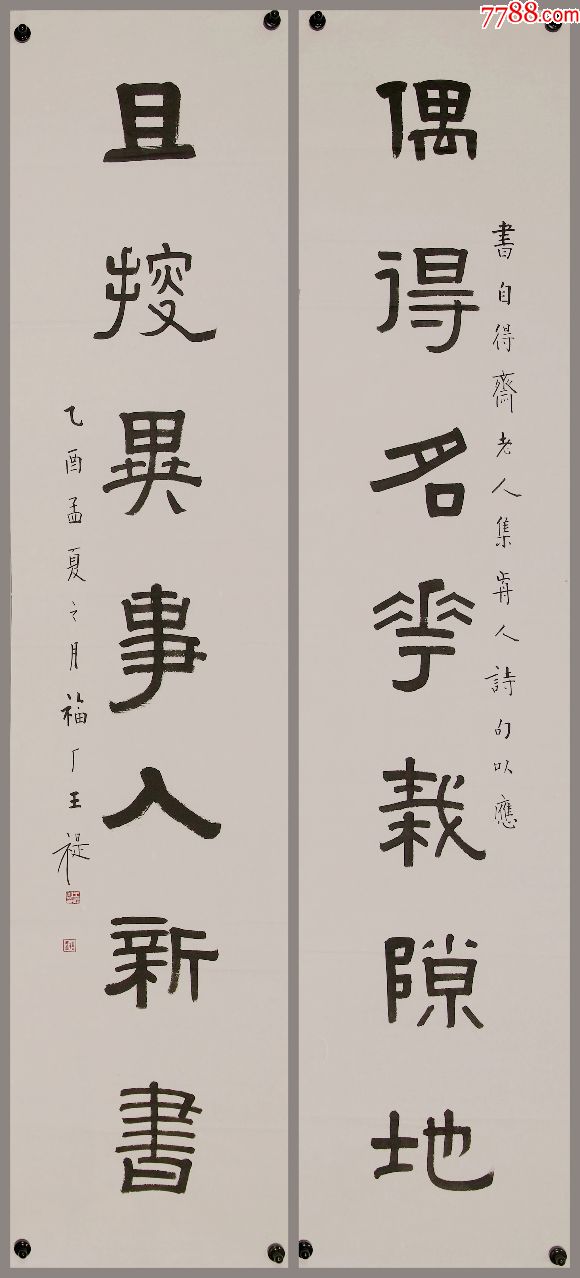 7788.com
偶得名花栽隙地
書自得齋老人集歬人詩句以應
且搜異事入新書
乙酉孟夏之月福厂王禔